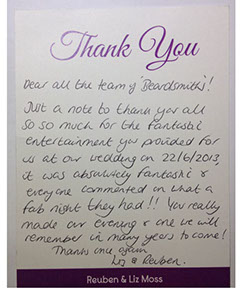 Thank You
Dear all the team of 'Beardsmiths'!
Just a note to thank you all
so so much for the fantastic
entertainment you provided for
us at our wedding on 22/6/2013,
it was absolutely fantastic &
everyone commented on what a
fab night they had!! You really
made our evening & one we will
remember in many years to come!
Thanks once again
Liz & Reuben.
Reuben & Liz Moss